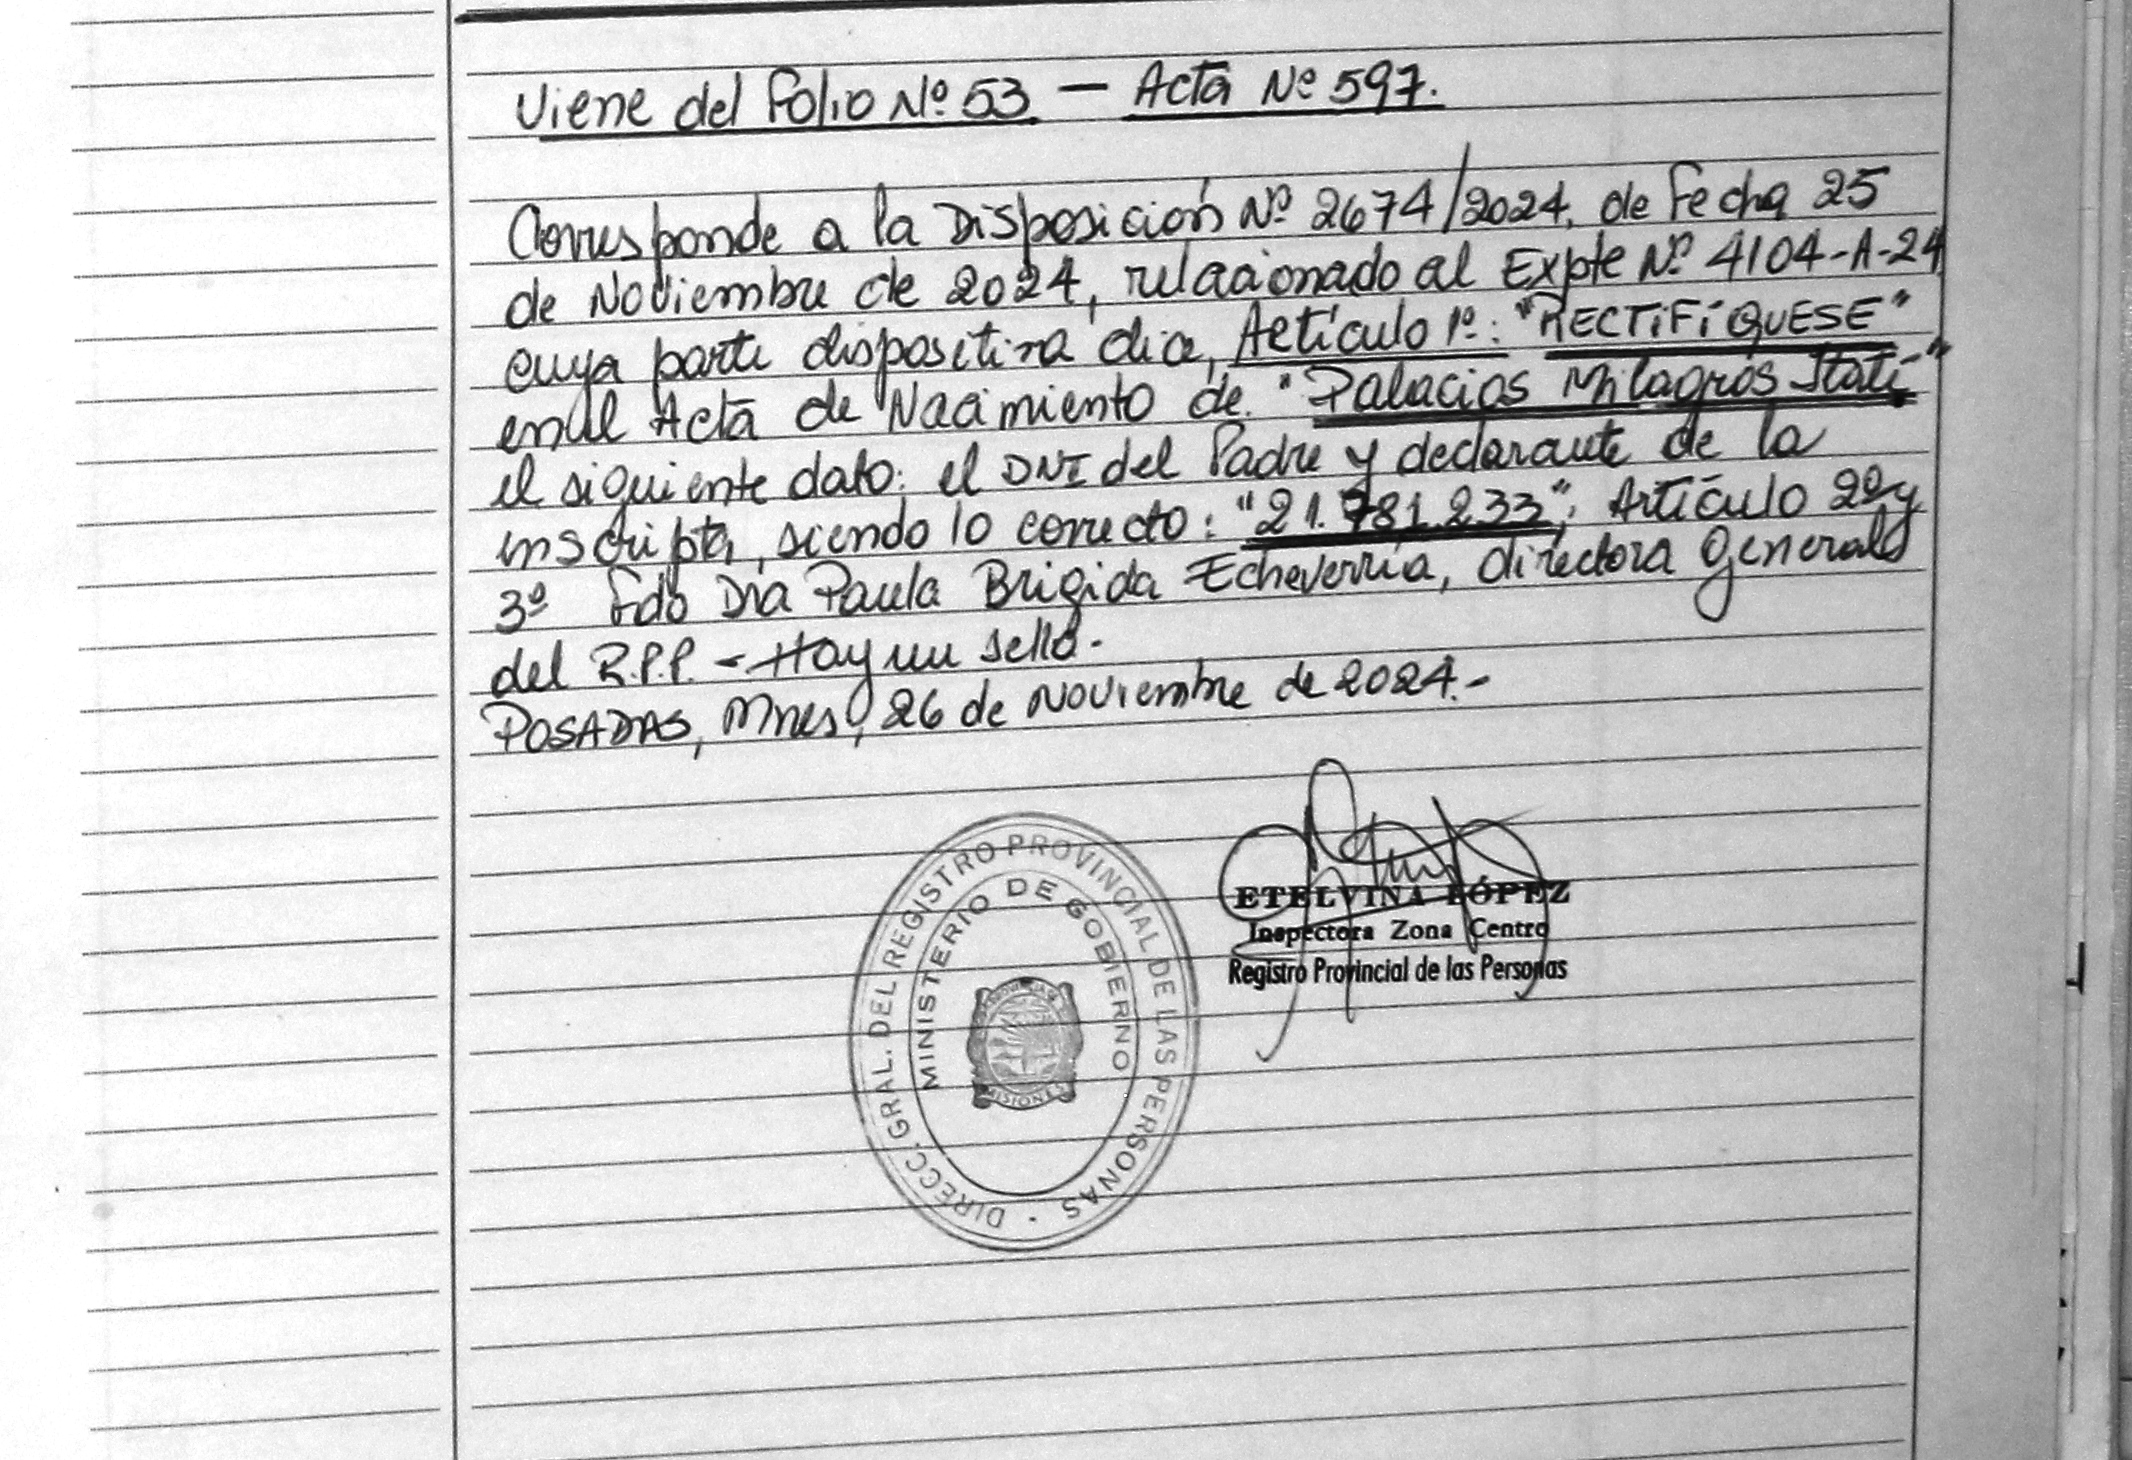 Viene del Folio Nº 53 — Acta Nº 597.
Corresponde a la Disposición Nº 2674/2024, de Fecha 25
de Noviembre de 2024, relacionado al Expte Nº 4104-A-24
cuya parte dispositiva dice, Artículo 1º: "RECTIFÍQUESE"
en el Acta de Nacimiento de "Palacios Milagros Itatí"
el siguiente dato: el DNI del Padre y declarante de la
inscripta, siendo lo correcto: "21.781.233"; Artículo 2º y
3º Fdo Dra Paula Brigida Echeverría, directora General
del R.P.P. - Hay un sello.
POSADAS, Mnes, 26 de Noviembre de 2024.-
DIRECC. GRAL. DEL REGISTRO PROVINCIAL DE LAS PERSONAS
MINISTERIO DE GOBIERNO
MISIONES
ETELVINA LÓPEZ
Inspectora Zona Centro
Registro Provincial de las Personas